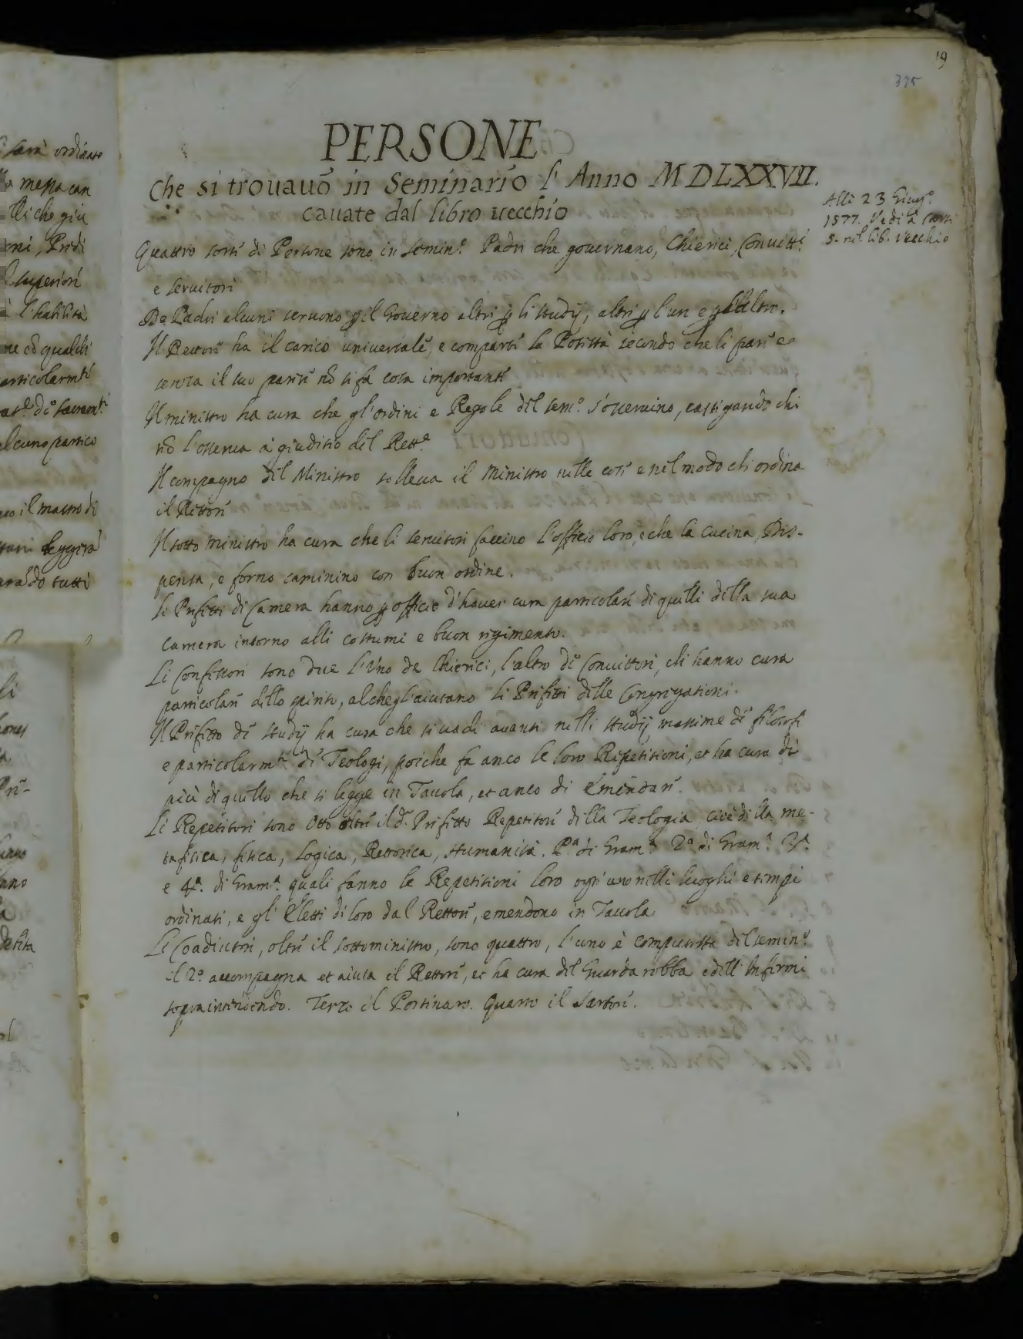 19
375
PERSONE
Che si trovavō in Seminario l'Anno MDLXXVII.
cavate dal libro vecchio
Alli 23 Giug.º
1577. Vedi à car.
5. nel lib. vecchio
Quattro sorti di Persone sono in Semin.º Padri che governano, Chierici, Convitt.i
e servitori
De Padri alcuni servono p il Governo altri p li studij, altri p l'un e p l'altro.
Il Rettore ha il carico universale, e comparte la Potestà secondo che li pare e
senza il suo parere nō si fa cosa importante
Il ministro ha cura che gl'ordini e Regole del sem.º s'osservino, castigando chi
nō l'osserva à giuditio del Rett.e
Il compagno del Ministro solleva il Ministro nelle cose e nel modo ch'ordina
il Rettore
Il sotto ministro ha cura che li servitori faccino l'officio loro, e che la cucina, Dis-
pensa, e forno caminino con buon ordine.
Li Prefetti di Camera hanno p officio d'haver cura particolare di quelli della sua
camera intorno alli costumi e buon regimento.
Li Confessori sono due l'Uno de Chierici, l'altro de Convittori, ch'hanno cura
particolare dello spirito, al che gl'aiutano li Prefetti delle Congregationi.
Il Prefetto de studij ha cura che si vada avanti nelli studij massime de filosofi
e particolarm.te de Teologi, poiche fa anco le loro Repetitioni, et ha cura di
più di quello che si legge in Tavola, et anco di emendare.
Li Repetitori sono Otto oltre il dº Prefetto Repetitore della Teologia cioè della me-
tafisica, fisica, Logica, Rettorica, Humanità, P.a di Gram.a 2.a di Gram.a 3.a
e 4.a di Gram.a quali fanno le Repetitioni loro ogn'uno nelli luoghi e tempi
ordinati, e gl'Eletti di loro dal Rettore, emendono in Tavola
Li Coadiutori, oltre il sottoministro, sono quattro, l'uno è computista del semin.º
il 2.º accompagna et aiuta il Rettore, et ha cura del Guardarobba e dell'Infermi
sopraintendendo. Terzo il Portinaro. Quarto il Sartore.